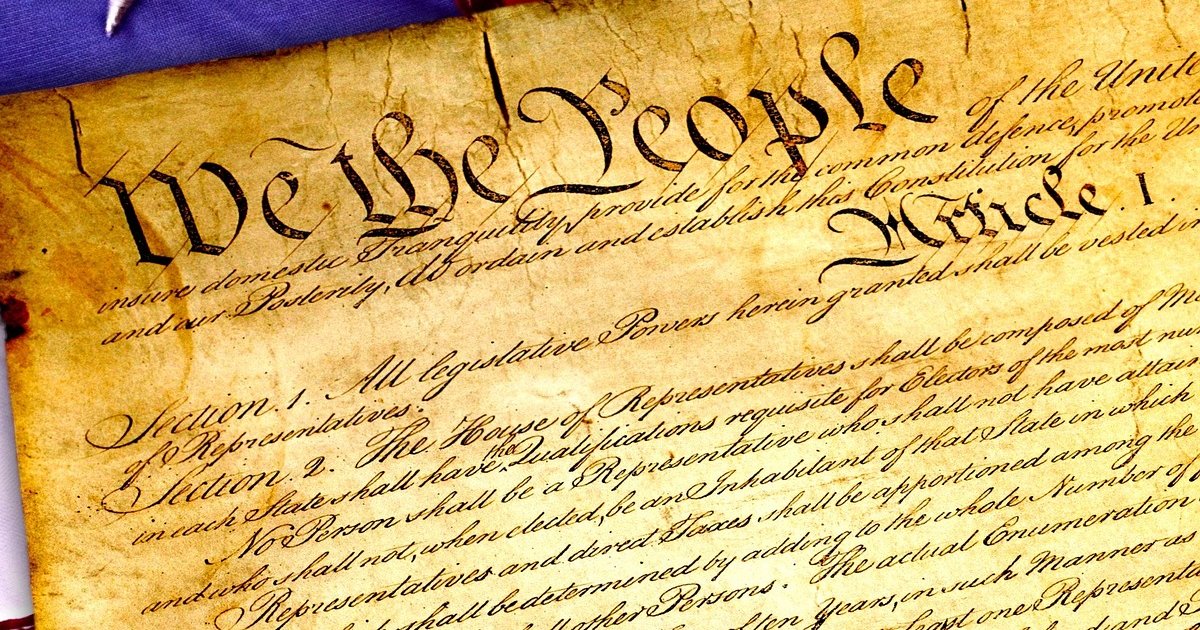 We the People of the Unite
insure domestic Tranquility, provide for the common defence, promot
and our Posterity, do ordain and establish this Constitution for the Un
Article. I.
Section. 1. All legislative Powers herein granted shall be vested in
of Representatives.
Section. 2. The House of Representatives shall be composed of Me
in each State shall have the Qualifications requisite for Electors of the most nu
No Person shall be a Representative who shall not have attain
and who shall not, when elected, be an Inhabitant of that State in which
Representatives and direct Taxes shall be apportioned among the
shall be determined by adding to the whole Number of
all other Persons. The actual Enumeration
of ten Years, in such Manner as
least one Representa